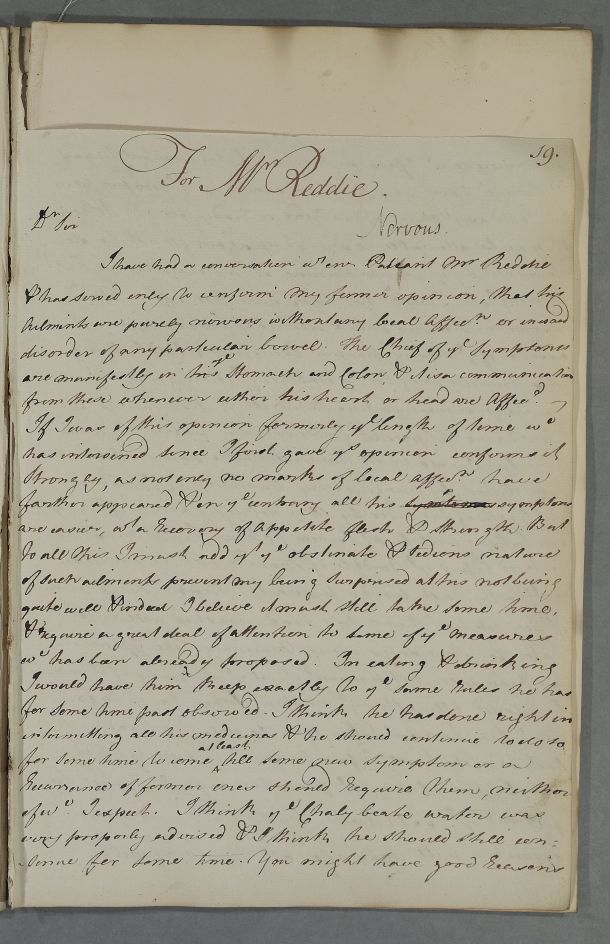 19.
For Mr. Reddie.
Dr Sir
Nervous.
I have had a conversation wt our Patient Mr Reddie
& has served only to confirm my former opinion, that his
ailments are purely nervous without any local Affecn. or inward
disorder of any particular bowel. The Chief of ye Symptoms
are manifestly in his ye Stomach and Colon, & tis a communication
from these whenever either his heart or head are Affecd.
If I was of this opinion formerly ye length of time wc
has intervened since I first gave ys opinion confirms it
strongly, as not only no marks of local affecn. have
farther appeared & on ye contrary all his symptoms symptoms
are easier, wt a recovery of Appetite flesh & strength. But
to all this I must add yt ye obstinate & tedious nature
of such ailments prevent my being surprised at his not being
quite well & indeed I believe it must still take some time,
& require a great deal of attention to some of ye measures
wc has been already proposed. In eating & drinking
I would have him keep exactly to ye same rules he has
for some time past observed. I think he has done right in
intermitting all his medicines & he should continue to do so
for some time to come at least till some new symptom or a
Recurrance of former ones should require them, neither
of wc I expect. I think ye Chalybeate water was
very properly advised & I think he should still con-
tinue for some time. You might have good Reasons